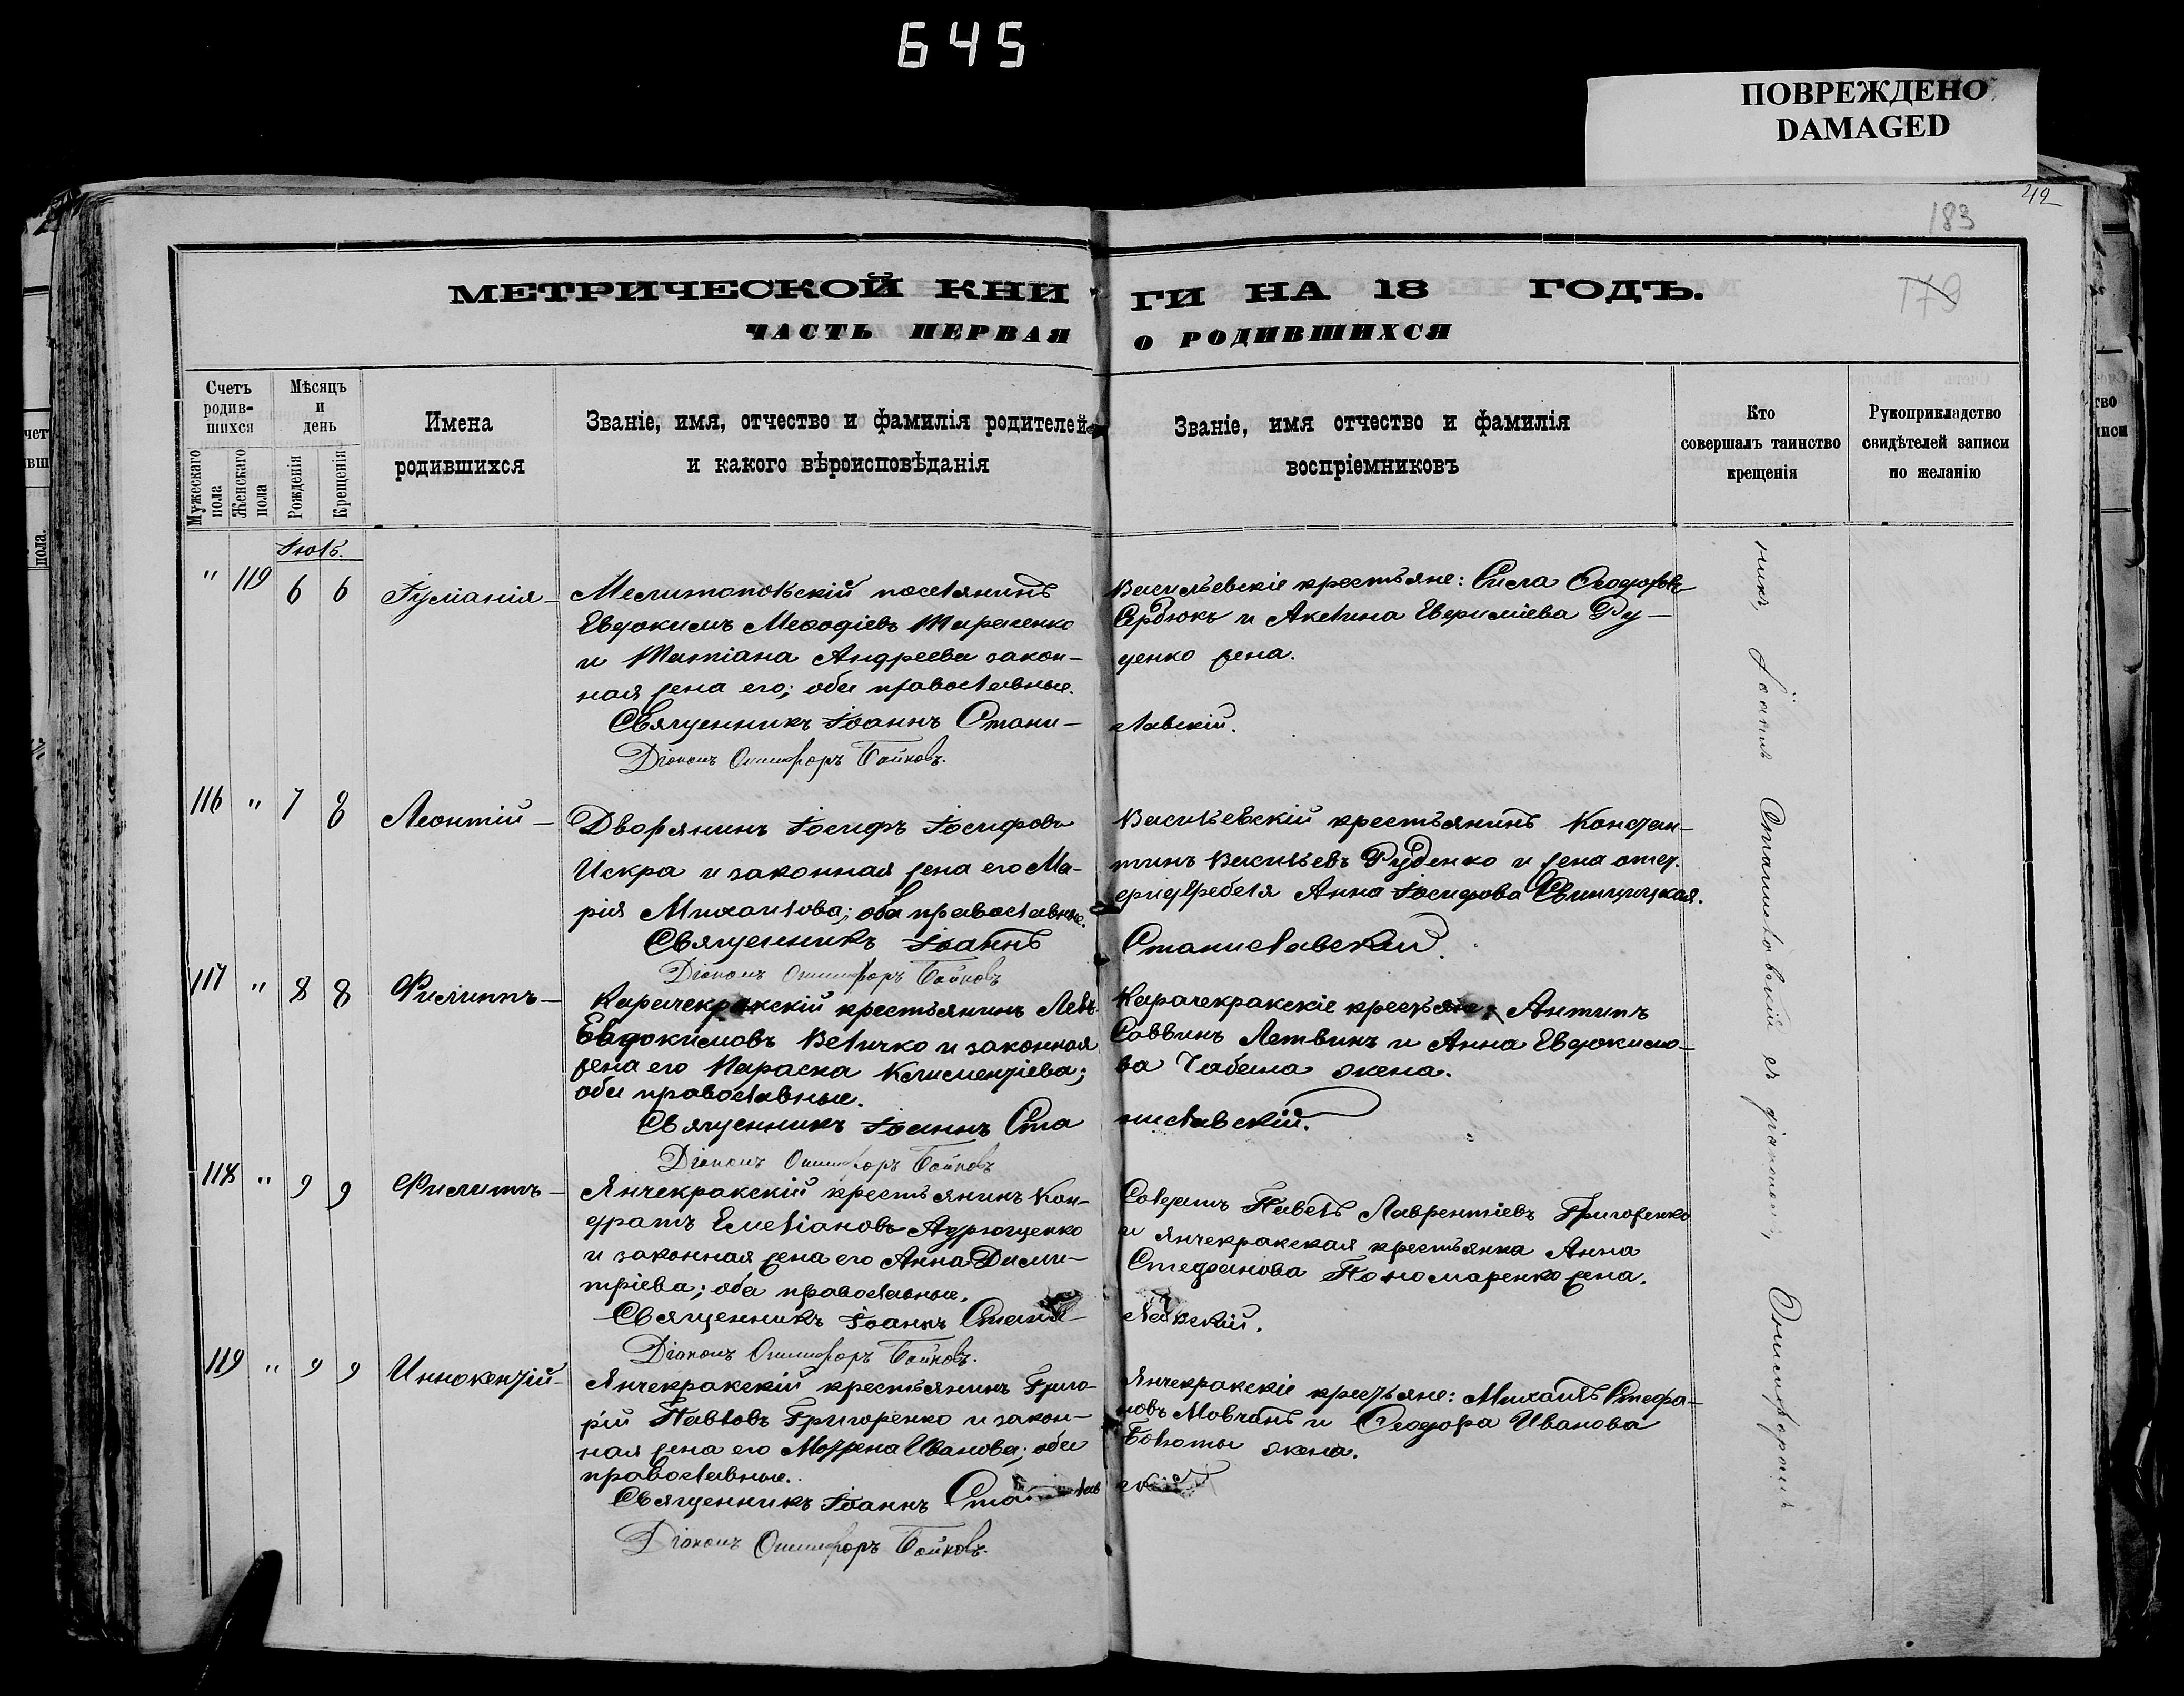 645
ПОВРЕЖДЕНО
DAMAGED
42
183
179
МЕТРИЧЕСКОЙ КНИГИ НА 18 ГОДЪ.
ЧАСТЬ ПЕРВАЯ О РОДИВШИХСЯ
Счетъ родив-шихся
Мужескаго пола
Женскаго пола
Мѣсяцъ и день
Рожденія
Крещенія
Имена родившихся
Званіе, имя, отчество и фамилія родителей
и какого вѣроисповѣданія
Званіе, имя отчество и фамилія
воспріемниковъ
Кто
совершалъ таинство
крещенія
Рукоприкладство
свидѣтелей записи
по желанію
Іюль.
" 119 6 6 Іуліанія
Мелитопольскій поселянинъ
Евдокимъ Меѳодіевъ Тараненко
и Татіана Андреева закон-
ная жена его; оба православные.
Священникъ Іоаннъ Стани-
Діаконъ Онисифоръ Бойковъ.
Васильевскіе крестьяне: Сисла Ѳеодоровъ
Сердюкъ и Акилина Евфиміева Ру-
денко жена.
славскій.
116 " 7 8 Леонтій
Дворянинъ Іосифъ Іосифовъ
Искра и законная жена его Ма-
рія Михаилова; оба православные.
Священникъ Іоаннъ
Діаконъ Онисифоръ Бойковъ
Васильевскій крестьянинъ Констан-
тинъ Васильевъ Руденко и жена отст.
Анна Іосифова
Станиславскій.
117 " 8 8 Филиппъ
Карачекракскій крестьянинъ Левъ
Евдокимовъ Величко и законная
жена его Параска Климентіева;
оба православные.
Священникъ Іоаннъ Ста
Діаконъ Онисифоръ Бойковъ
Карачекракскіе крестьяне: Антипъ
Саввинъ Летвинъ и Анна Евдокимо-
ва Чабана жена.
ниславскій.
118 " 9 9 Филиппъ
Янчекракскій крестьянинъ Кон-
дратъ Емеліановъ Андрющенко
и законная жена его Анна Дими-
тріева; оба православные.
Священникъ Іоаннъ Стани-
Діаконъ Онисифоръ Бойковъ.
Солдатъ Павелъ Лаврентіевъ Григоренко
и янчекракская крестьянка Анна
Стефанова Пономаренко жена.
славскій.
119 " 9 9 Иннокентій
Янчекракскій крестьянинъ Григо-
рій Павловъ Григоренко и закон-
ная жена его Мотрена Иванова; оба
православные.
Священникъ Іоаннъ Станислав
Діаконъ Онисифоръ Бойковъ.
Янчекракскіе крестьяне: Михаилъ Стефа-
новъ Мовчанъ и Ѳеодора Иванова
Болоты жена.
скій
никъ Іоаннъ Станиславскій съ діакономъ Онисифоромъ